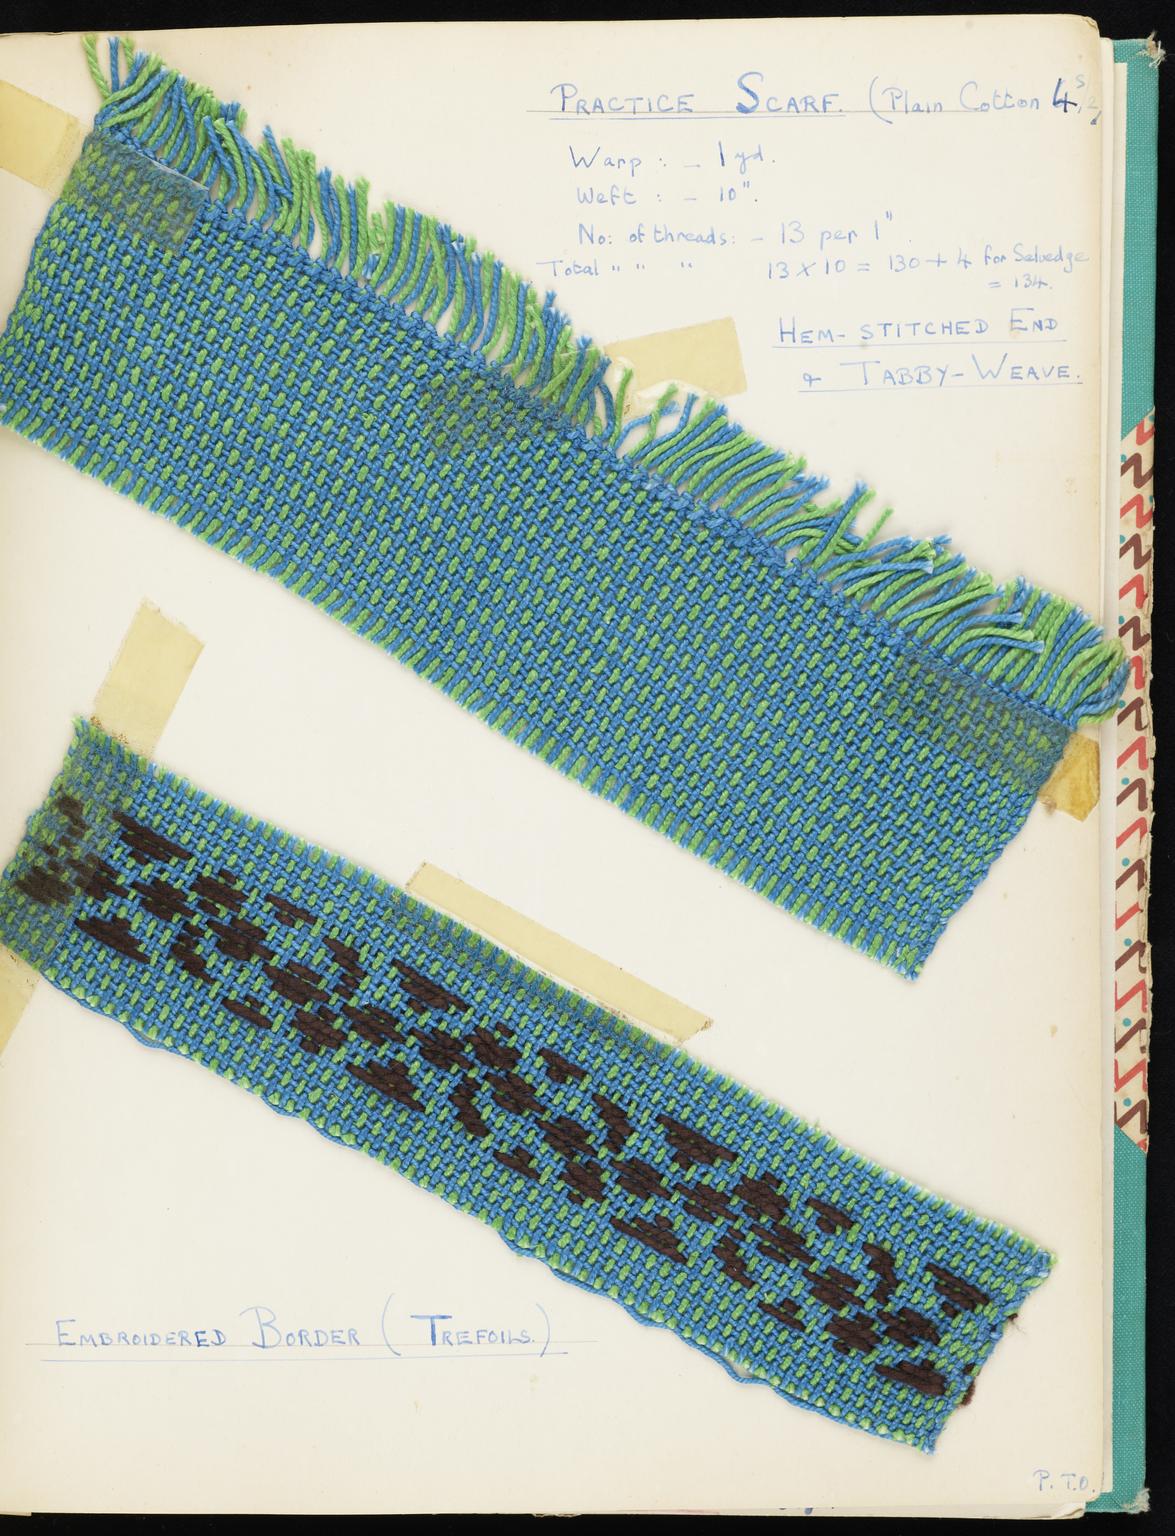 PRACTICE SCARF. (Plain Cotton 4s/2)
Warp : - 1 yd.
Weft : - 10".
No: of threads: - 13 per 1"
Total " " " 13 x 10 = 130 + 4 for Selvedge
= 134.
HEM-STITCHED END
& TABBY-WEAVE.
EMBROIDERED BORDER (TREFOILS.)
P.T.O.